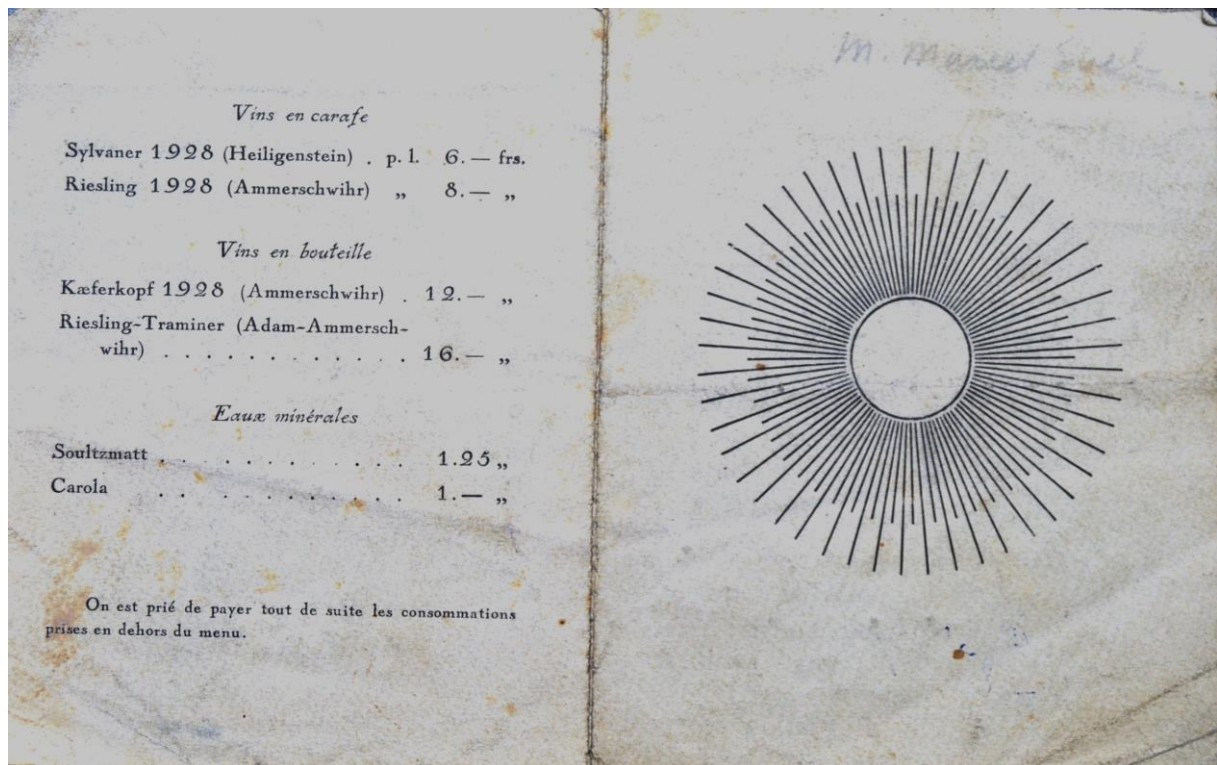 Vins en carafe
Sylvaner 1928 (Heiligenstein) . p. l. 6.— frs.
Riesling 1928 (Ammerschwihr) „ 8.— „
Vins en bouteille
Kæferkopf 1928 (Ammerschwihr) . 12.— „
Riesling-Traminer (Adam-Ammersch-
wihr) . . . . . . . . . . . . 16.— „
Eaux minérales
Soultzmatt . . . . . . . . . . . 1.25 „
Carola . . . . . . . . . . . 1.— „
On est prié de payer tout de suite les consommations
prises en dehors du menu.
M. Marcel